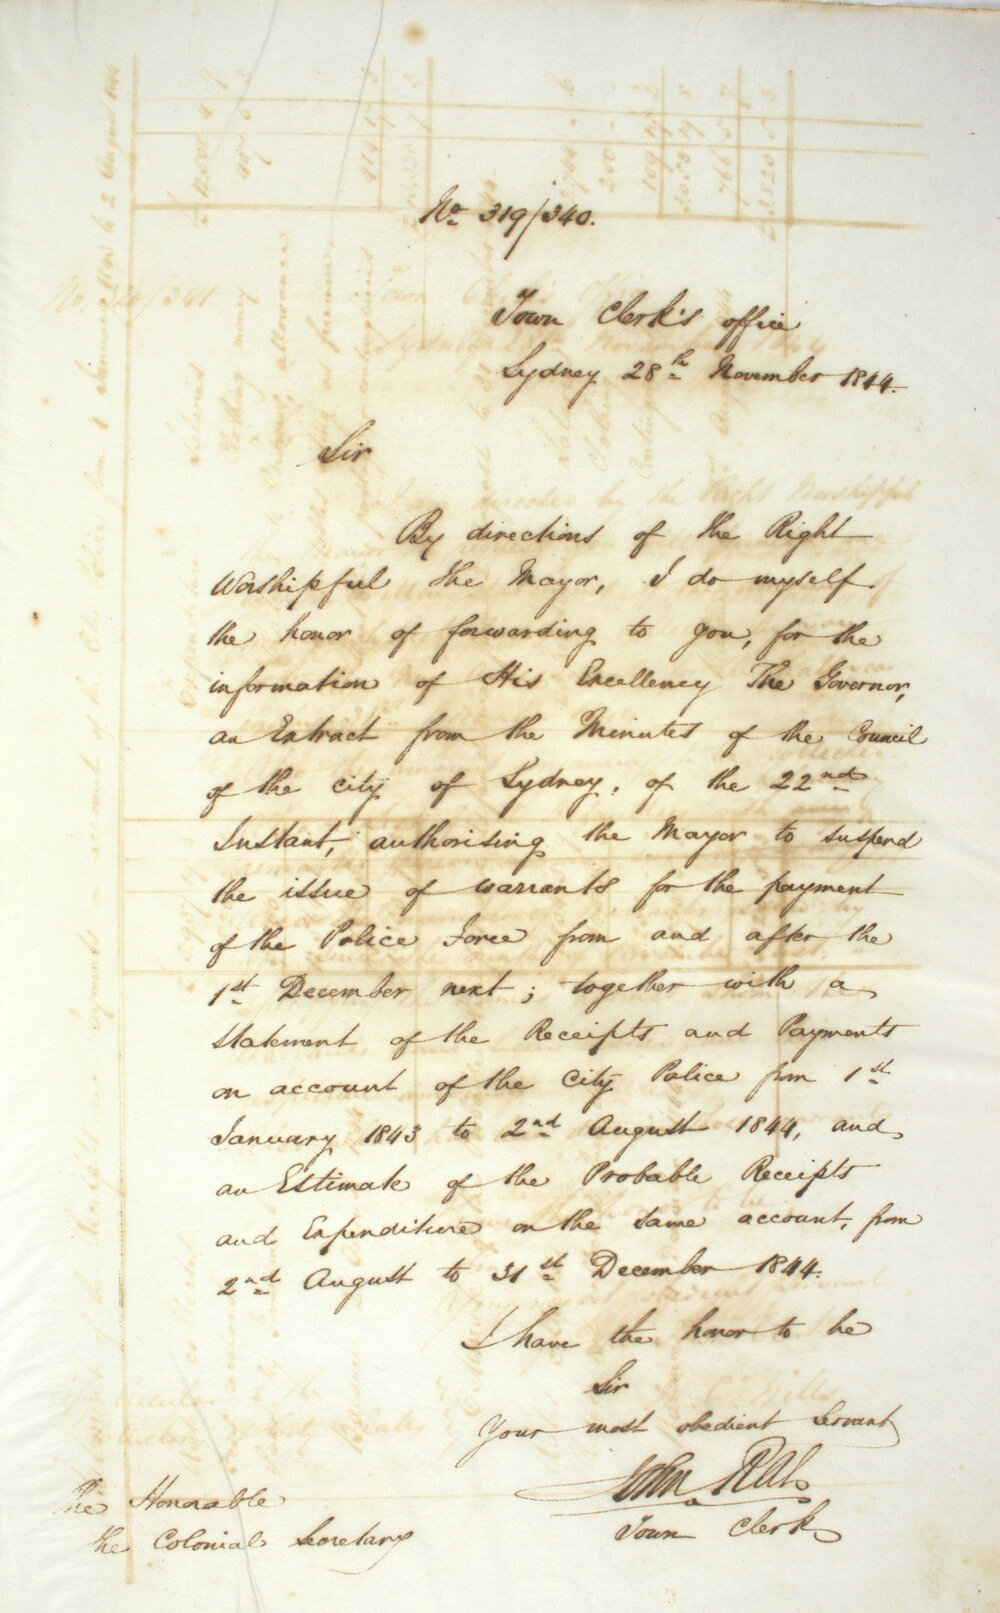 No 319/340.
Town Clerk's office
Sydney 28th November 1844.
Sir
By directions of the Right
Worshipful the Mayor, I do myself
the honor of forwarding to you, for the
information of His Excellency The Governor,
an Extract from the Minutes of the Council
of the city of Sydney, of the 22nd
Instant, authorising the Mayor to suspend
the issue of warrants for the payment
of the Police Force from and after the
1st December next; together with a
statement of the Receipts and Payments
on account of the City Police from 1st
January 1843 to 2nd August 1844, and
an Estimate of the Probable Receipts
and Expenditure on the same account, from
2nd August to 31st December 1844.
I have the honor to be
Sir
Your most obedient Servant
John
Town Clerk
The Honorable
the Colonial Secretary